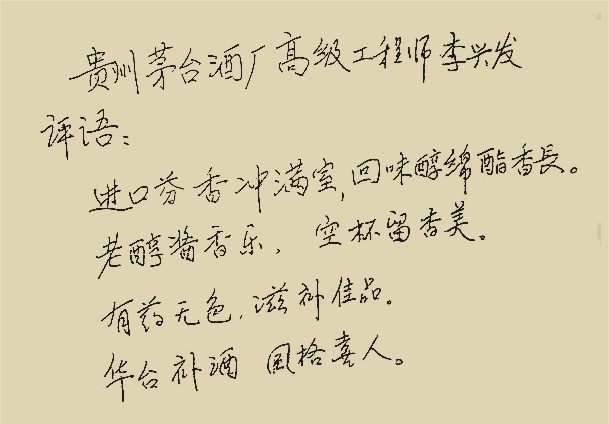 贵州茅台酒厂高级工程师李兴发
评语：
进口芬香冲满室，回味醇绵酯香長。
老醇酱香乐，空杯留香美。
有药无色，滋补佳品。
华台补酒 风格喜人。